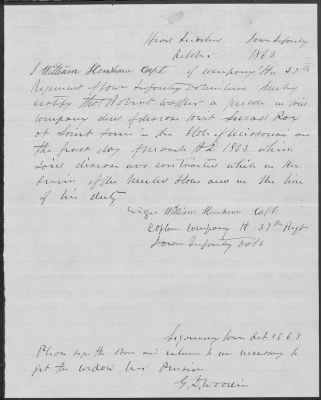 Head Quarters Iowa Infantry
October 1863
I William Henshaw Capt of company H 37th
Regiment of Iowa Infantry volunteers hereby
certify that Robert a person in said
company died of disease small Pox
at Saint Louis in the State of Missouri on
the first day of March A D 1863 which
said disease was contracted while in the
service of the United States and in the line
of his duty
William Henshaw Capt
Capton company H. 37th Regt
Iowan Infantry vols
Sigourney Iowa Oct 63
Please sign the above and return to me necessary to
get the widow her Pension